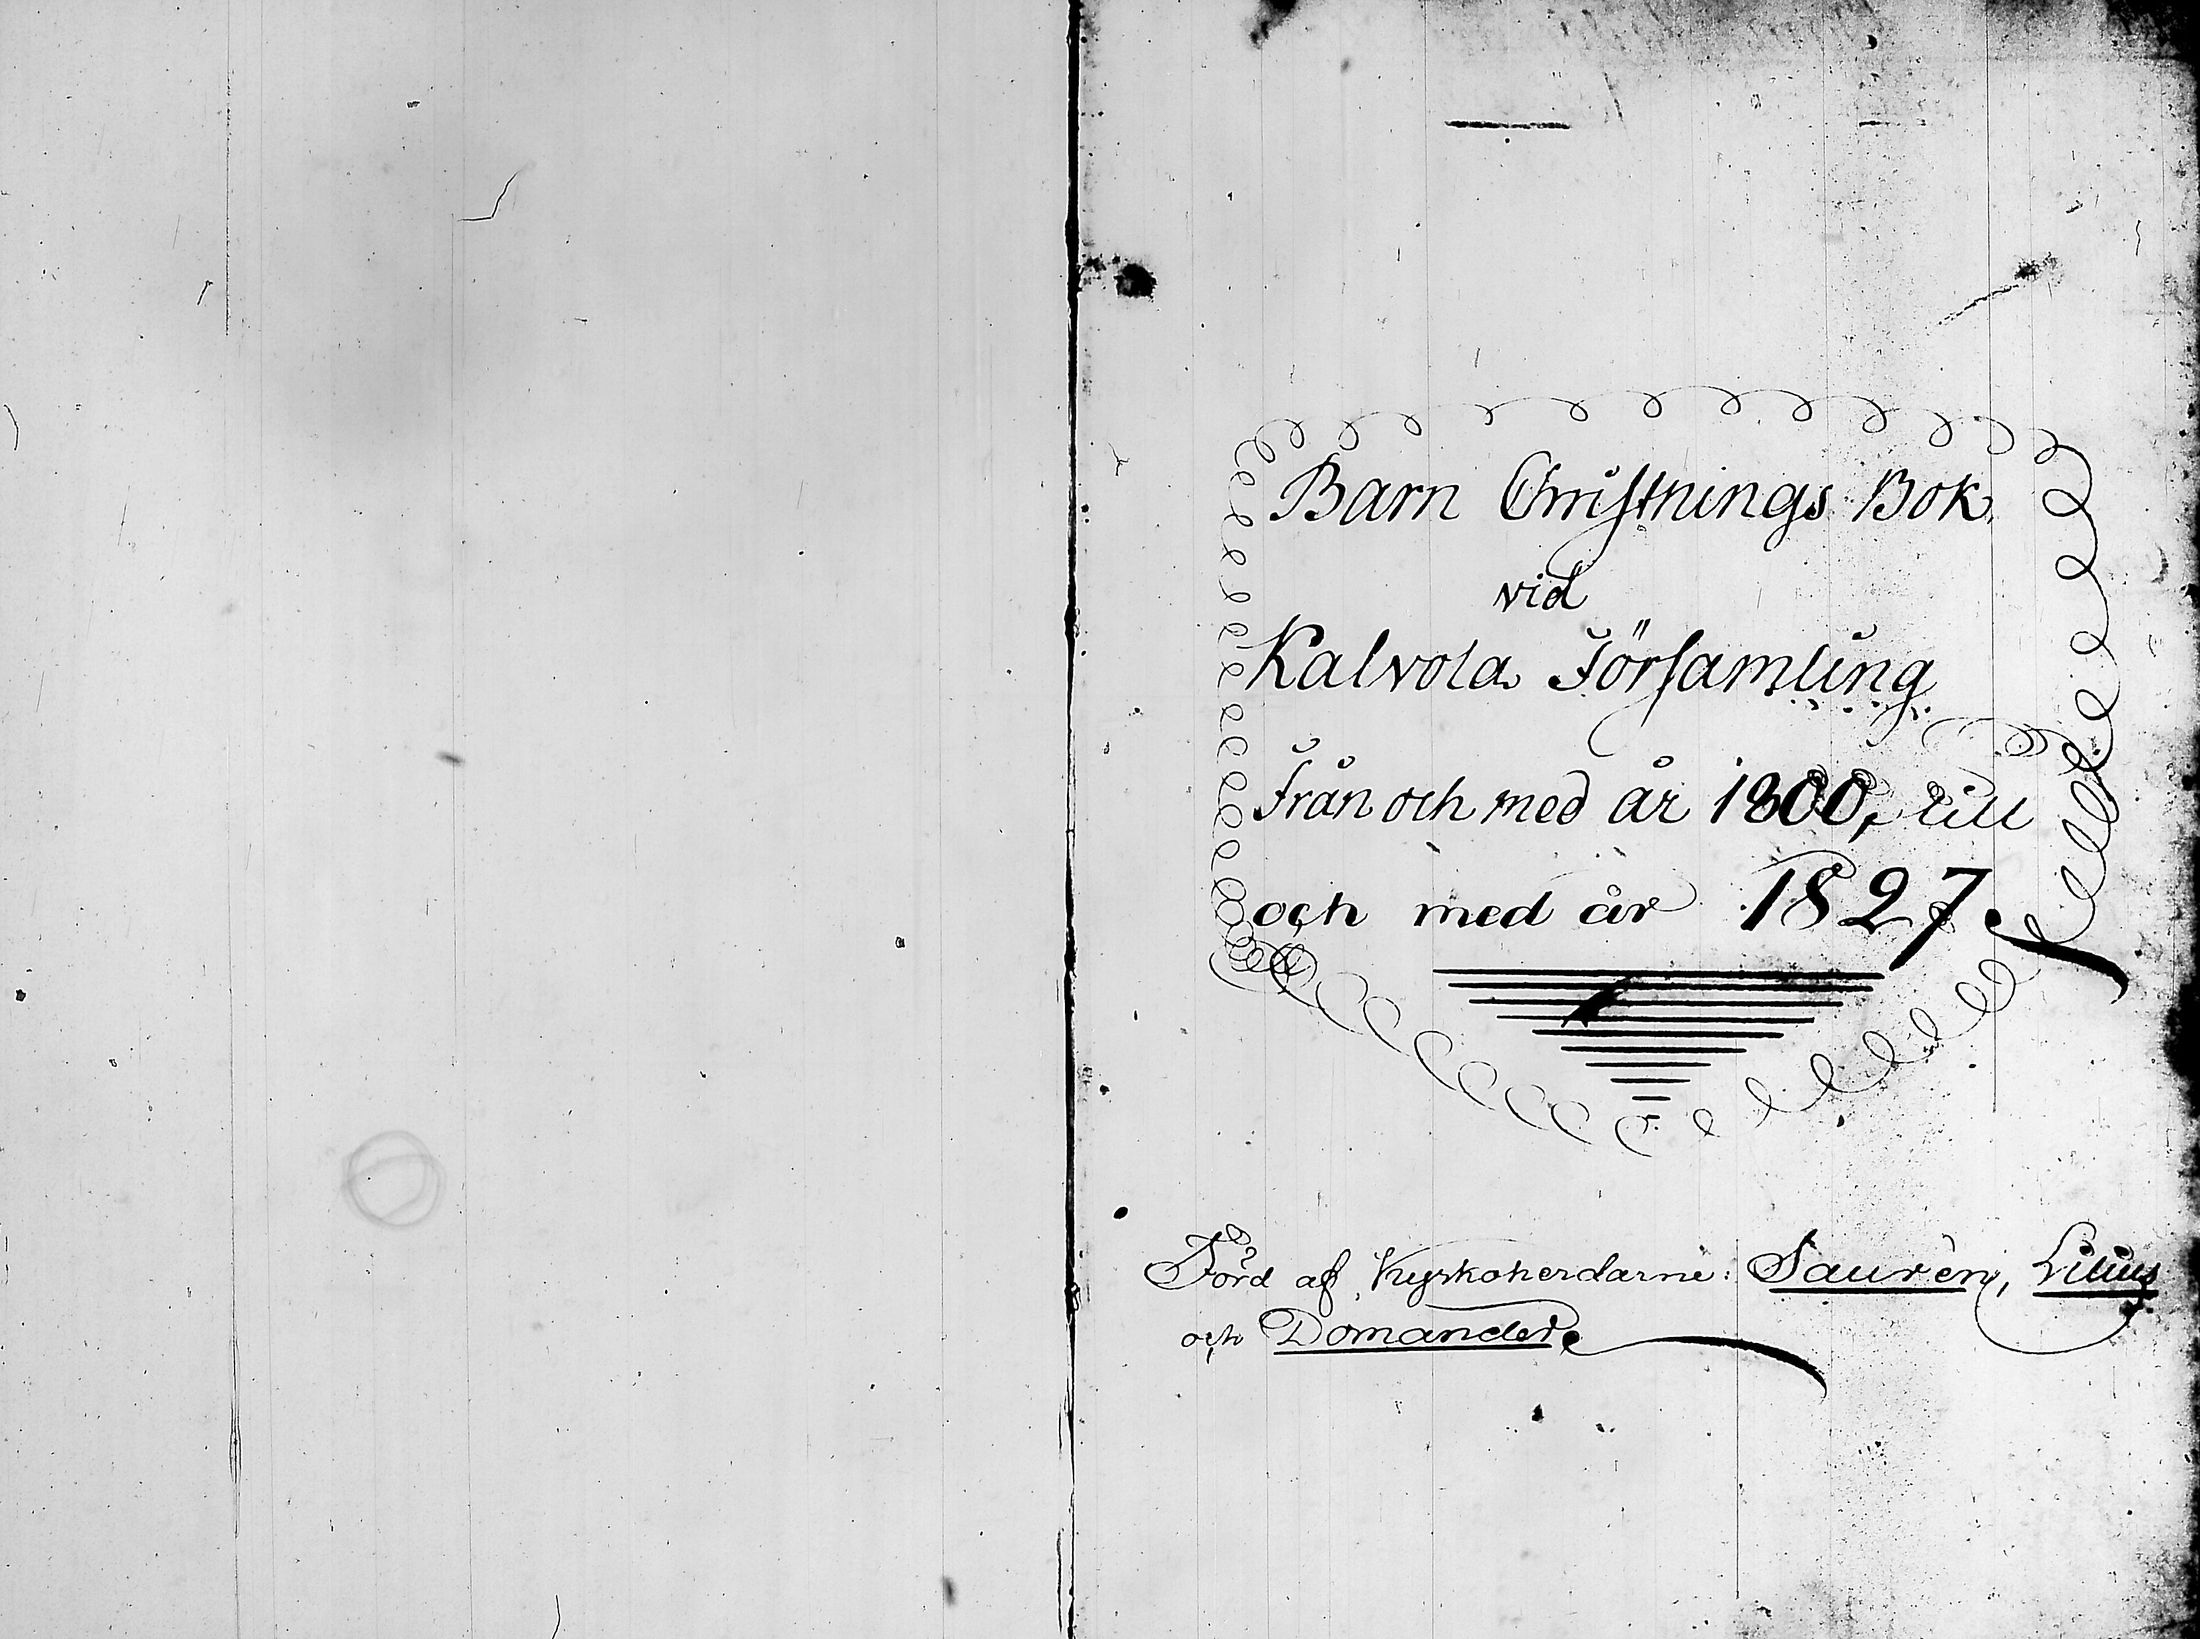 Barn Christnings Bok
vid
Kalvola Församling
Från och med år 1800, till
och med år 1827.
Förd af Kyrkoherdarne: Saurén, Lilius
och Domander.